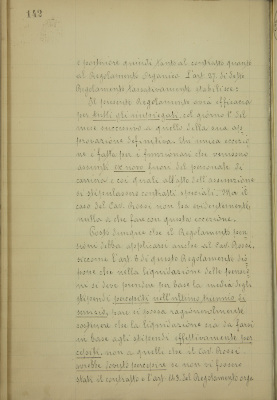 142
e perdinere quindi tanto al contratto quanto
al Regolamento Organico. L'art. 27 di detto
Regolamento tassativamente stabilisce:
Il presente Regolamento avrà efficacia
per tutti gli impiegati, col giorno 1° del
mese successivo a quello della sua ap-
provazione definitiva. Un'unica eccezio-
ne è fatta per i funzionari che venissero
assunti ex novo fuori del personale di
servizio e coi quali all'atto dell'assunzione
si stipulassero contratti speciali. Ma il
caso del Cav. Rossi non ha evidentemente
nulla a che fare con questa eccezione.
Posto dunque che il Regolamento pen-
sioni debba applicarsi anche al Cav. Rossi,
siccome l'art. 6 di questo Regolamento dis-
pone che nella liquidazione delle pensio-
ni si deve prendere per base la media degli
stipendi percepiti nell'ultimo triennio di
servizio, non si potrà ragionevolmente
sostenere che la liquidazione sia da farsi
in base agli stipendi effettivamente per-
cepiti, non a quello che il Cav. Rossi
avrebbe dovuto percepire se non vi fossero
stati il contratto e l'art. 42 del Regolamento orga-